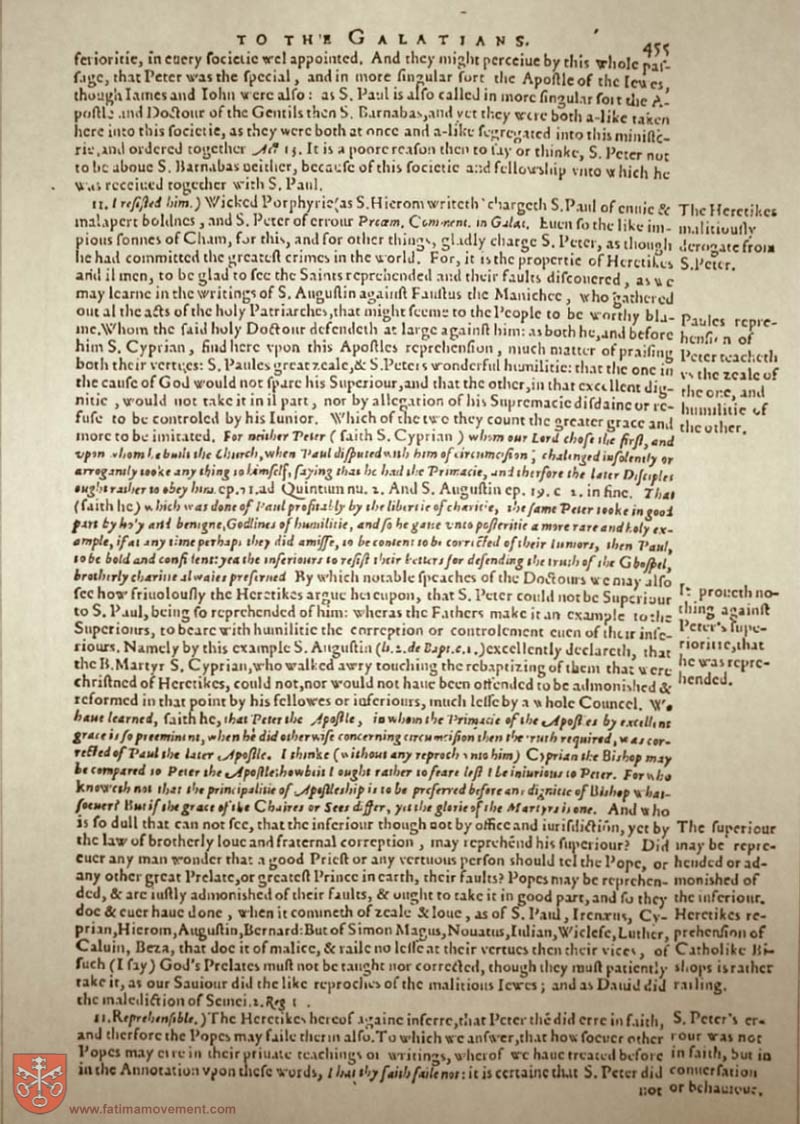 TO THE GALATIANS. 455
ſerioritie, in euery ſocietie wel appointed. And they might perceiue by this whole paſ-
ſage, that Peter was the ſpecial, and in more ſingular ſort the Apoſtle of the Iewes,
though Iames and Iohn were alſo: as S. Paul is alſo called in more ſingular ſort the A-
poſtle and Doctour of the Gentils then S. Barnabas, and yet they were both a-like taken
here into this ſocietie, as they were both at once and a-like ſegregated into this miniſte-
rie, and ordered together Act 13. It is a poore reaſon then to ſay or thinke, S. Peter not
to be aboue S. Barnabas neither, becauſe of this ſocietie and fellowſhip vnto which he
was receiued together with S. Paul.
11. I reſiſted him.) Wicked Porphyrie (as S. Hierom writeth) chargeth S. Paul of enuie &
malapert boldnes, and S. Peter of errour Proœm. Comment. in Galat. Euen ſo the like im-
pious ſonnes of Cham, for this, and for other things, gladly charge S. Peter, as though
he had committed the greateſt crimes in the world. For, it is the propertie of Heretikes
and il men, to be glad to ſee the Saints reprehended and their faults diſcouered, as we
may learne in the writings of S. Auguſtin againſt Fauſtus the Manichee, who gathered
out al the acts of the holy Patriarches, that might ſeeme to the People to be worthy bla-
me. Whom the ſaid holy Doctour defendeth at large againſt him: as both he, and before
him S. Cyprian, find here vpon this Apoſtles reprehenſion, much matter of praiſing
both their vertues: S. Paules great zeale, & S. Peters wonderful humilitie: that the one in
the cauſe of God would not ſpare his Superiour, and that the other, in that excellent dig-
nitie, would not take it in il part, nor by allegation of his Supremacie diſdaine or re-
fuſe to be controled by his Iunior. Which of the two they count the greater grace and
more to be imitated. For neither Peter (ſaith S. Cyprian) whom our Lord choſe the firſt, and
vpon whom he built the Church, when Paul diſputed with him of circumciſion, chalenged inſolently or
arrogantly tooke any thing to himſelf, ſaying that he had the Primacie, and therfore the later Diſciples
ought rather to obey him. ep. 71. ad Quintum nu. 2. And S. Auguſtin ep. 19. c 2. in fine. That
(ſaith he) which was done of Paul profitably by the libertie of charitie, the ſame Peter tooke in good
part by holy and benigne, Godlines of humilitie, and ſo he gaue vnto poſteritie a more rare and holy ex-
ample, if at any time perhaps they did amiſſe, to be content to be corrected of their Iuniors, then Paul,
to be bold and confident: yea the inferiours to reſiſt their betters for defending the truth of the Ghoſpel,
brotherly charitie alwaies preſerued By which notable ſpeaches of the Doctours we may alſo
ſee how friuolouſly the Heretikes argue hereupon, that S. Peter could not be Superiour
to S. Paul, being ſo reprehended of him: wheras the Fathers make it an example to the
Superiours, to beare with humilitie the correption or controlement euen of their infe-
riours. Namely by this example S. Auguſtin (li. 2. de Bapt. c. 1.) excellently declareth, that
the B. Martyr S. Cyprian, who walked awry touching the rebaptizing of them that were
chriſtned of Heretikes, could not, nor would not haue been offended to be admoniſhed &
reformed in that point by his fellowes or inferiours, much leſſe by a whole Councel. We
haue learned, ſaith he, that Peter the Apoſtle, in whom the Primacie of the Apoſtles by excellent
grace is ſo preeminent, when he did otherwiſe concerning circumciſion then the truth required, was cor-
rected of Paul the later Apoſtle. I thinke (without any reproch vnto him) Cyprian the Biſhop may
be compared to Peter the Apoſtle: howbeit I ought rather to feare leſt I be iniurious to Peter. For who
knoweth not that the principalitie of Apoſtleſhip is to be preferred before any dignitie of Biſhop what-
ſoeuer? But if the grace of the Chaires or Sees differ, yet the glorie of the Martyrs is one. And who
is ſo dull that can not ſee, that the inferiour though not by office and iuriſdiction, yet by
the law of brotherly loue and fraternal correption, may reprehend his ſuperiour? Did
euer any man wonder that a good Prieſt or any vertuous perſon ſhould tel the Pope, or
any other great Prelate, or greateſt Prince in earth, their faults? Popes may be reprehen-
ded, & are iuſtly admoniſhed of their faults, & ought to take it in good part, and ſo they
doe & euer haue done, when it commeth of zeale & loue, as of S. Paul, Irenæus, Cy-
prian, Hierom, Auguſtin, Bernard: But of Simon Magus, Nouatus, Iulian, Wiclefe, Luther,
Caluin, Beza, that doe it of malice, & raile no leſſe at their vertues then their vices, of
ſuch (I ſay) God's Prelates muſt not be taught nor corrected, though they muſt patiently
take it, as our Sauiour did the like reproches of the malitious Iewes; and as Dauid did
the malediction of Semei. 2. Reg
11. Reprehenſible.) The Heretikes hereof againe inferre, that Peter thē did erre in faith,
and therfore the Popes may faile therin alſo. To which we anſwer, that how ſoeuer other
Popes may erre in their priuate teachings or writings, wherof we haue treated before
in the Annotation vpon theſe words, That thy faith faile not: it is certaine that S. Peter did
not
The Heretikes
malitiouſly
derogate from
S. Peter.
Paules repre-
henſion of
Peter teacheth
vs the zeale of
the one, and
humilitie of
the other.
It proueth no-
thing againſt
Peter's ſupe-
rioritie, that
he was repre-
hended.
The ſuperiour
may be repre-
hended or ad-
moniſhed of
the inferiour.
Heretikes re-
prehenſion of
Catholike Bi-
ſhops is rather
railing.
S. Peter's er-
rour was not
in faith, but in
conuerſation
or behauiour.
www.fatimamovement.com